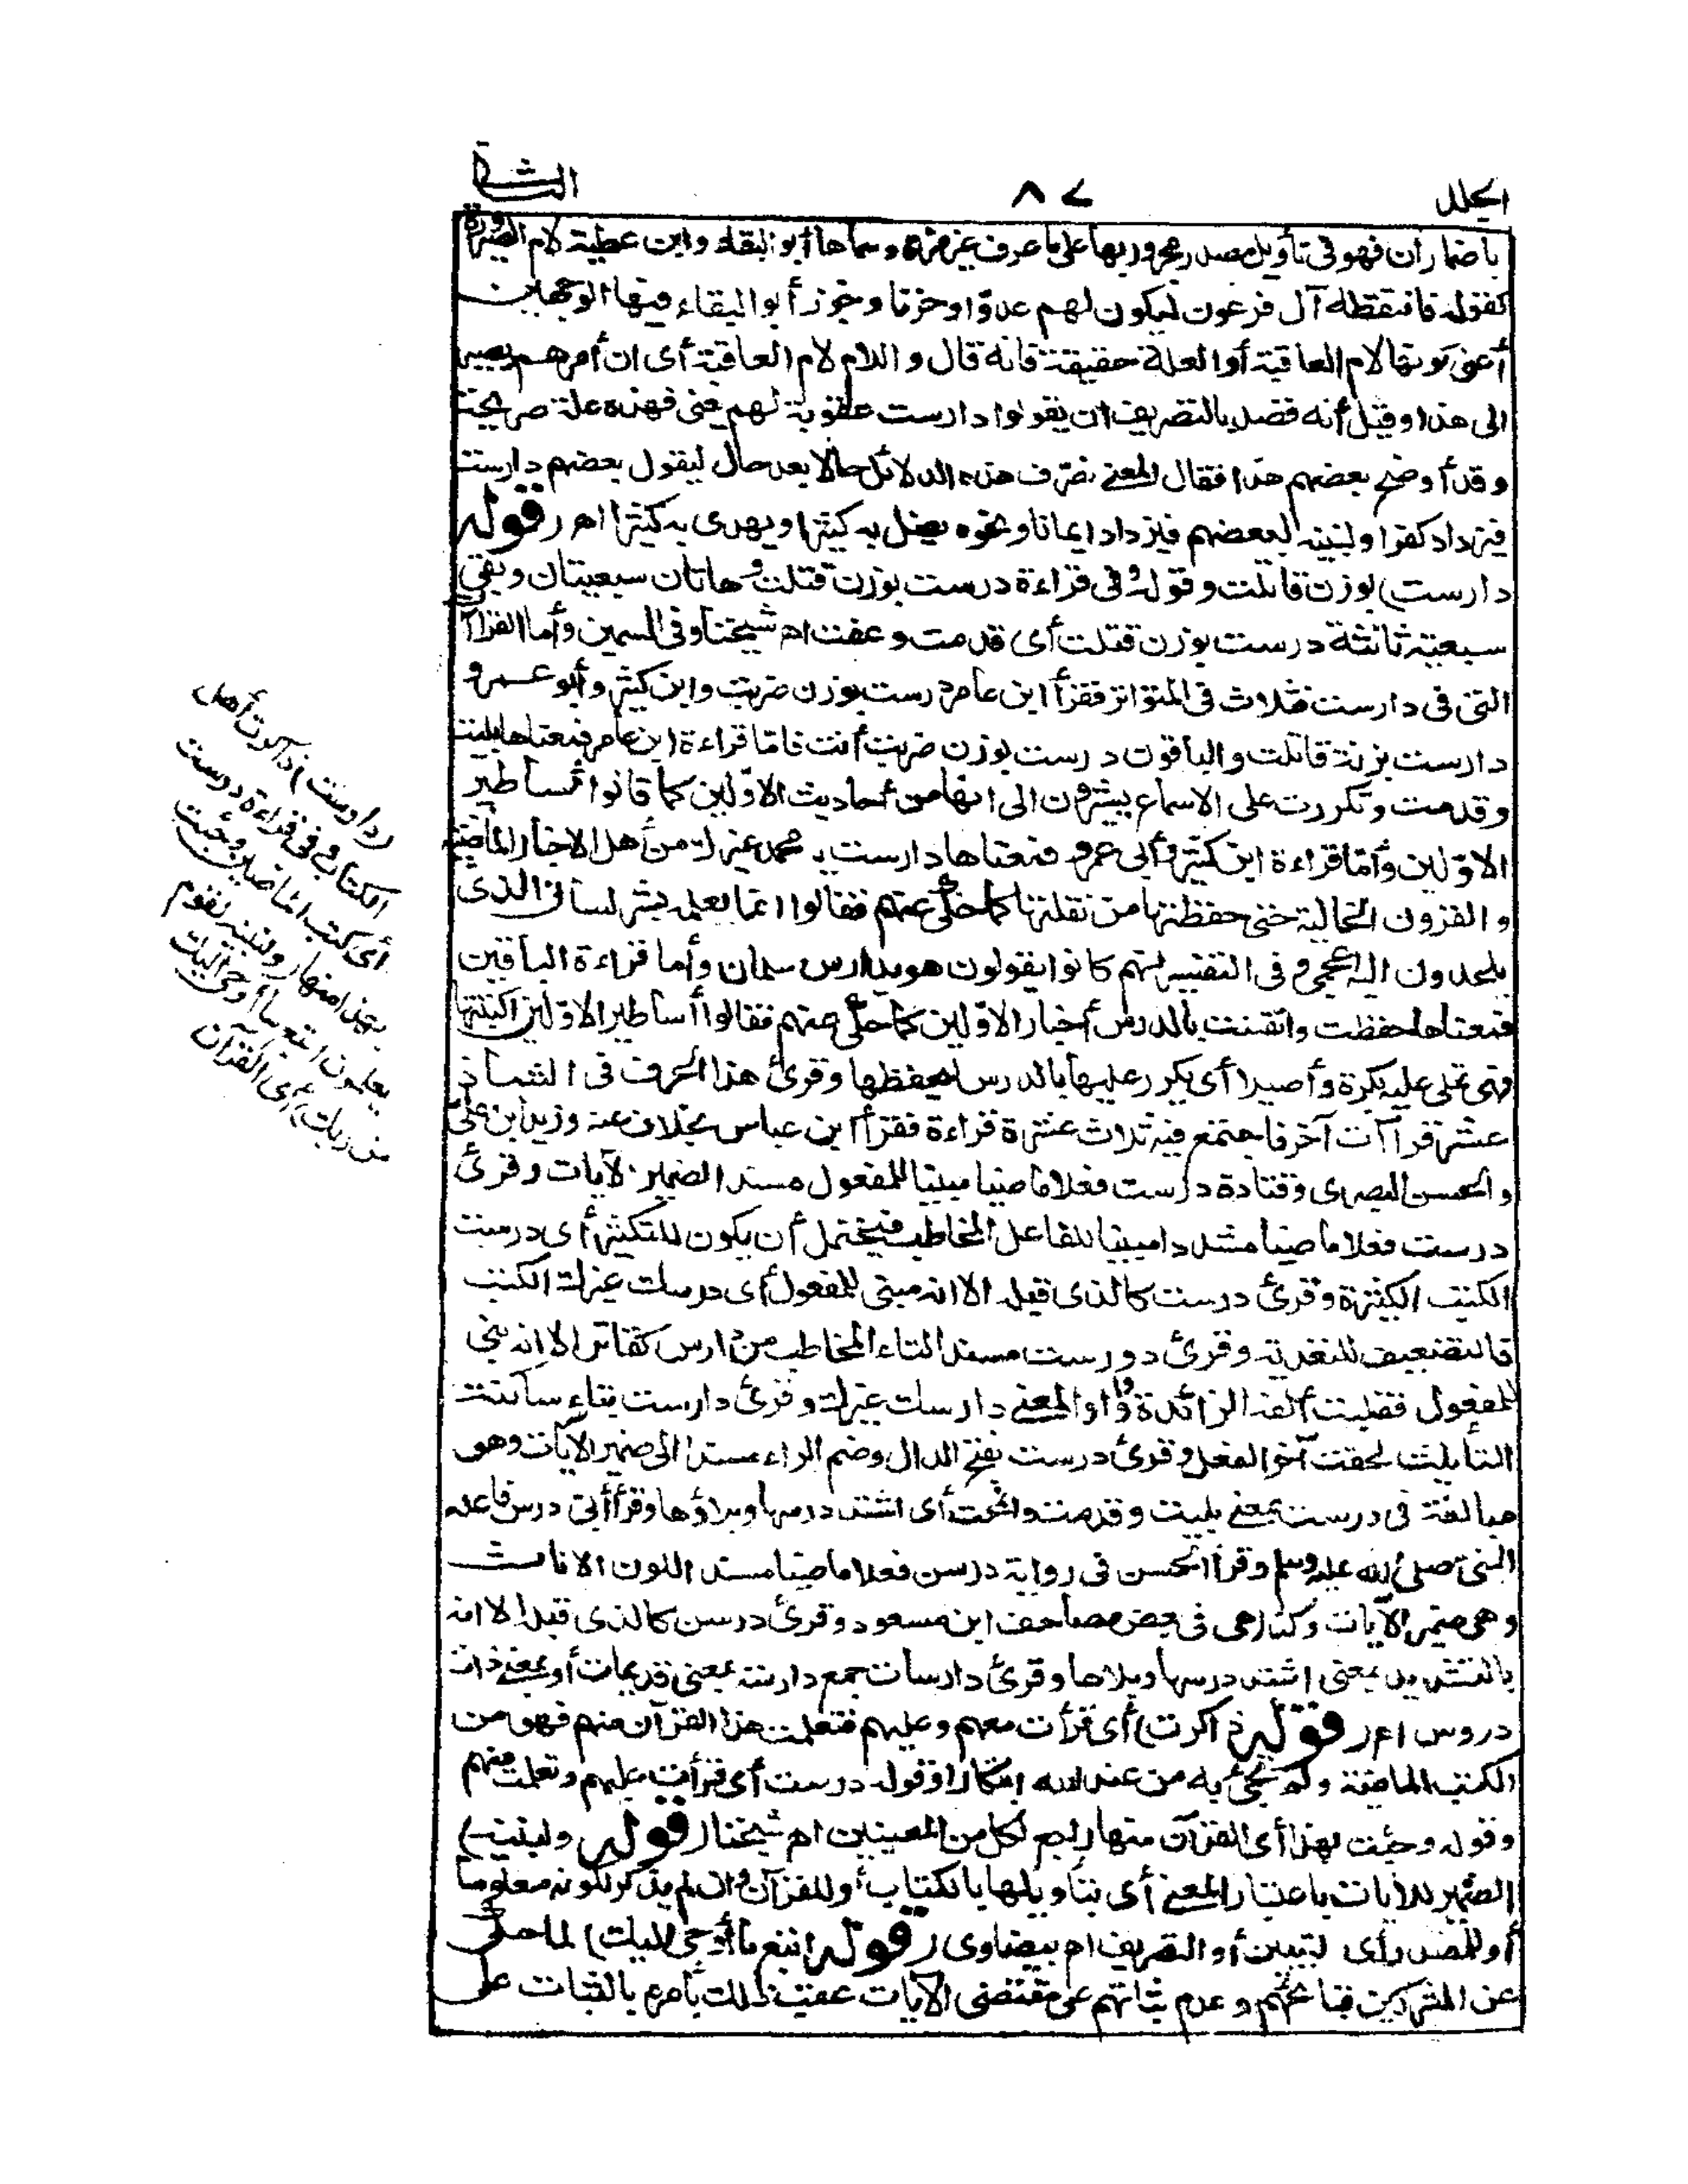 الجلد ٨٧ الثانى
باضمار ان فهو فى تأويل مصدر مجرور بها على ما عرف غير مرة وسماها أبو البقاء وابن عطية لام الصيرورة
كقوله فالتقطه آل فرعون ليكون لهم عدوّا وحزنا وجوز أبو البقاء فيها الوجهين
أعنى كونها لام العاقبة أو العلة حقيقة فانه قال واللام لام العاقبة أى ان أمرهم يصير
الى هذا وقيل أنه قصد بالتصريف ان يقولوا دارست عقوبة لهم يعنى فهذه علة صريحة
وقد أوضح بعضهم هذا فقال المعنى نصرّف هذه الدلائل حالا بعد حال ليقول بعضهم دارست
فيزداد كفرا ولنبينه لبعضهم فيزداد ايمانا ونحوه يضل به كثيرا ويهدى به كثيرا اهـ (قوله
دارست) بوزن قاتلت وقوله وفى قراءة درست بوزن قتلت وهاتان سبعيتان وبقى
سبعية ثالثة درست بوزن قتلت أى قدمت وعفت اهـ شيخنا وفى السمين وأما القراآت
التى فى دارست فثلاث فى المتواتر فقرأ ابن عامر درست بوزن ضربت وابن كثير وأبو عمرو
دارست بزنة قاتلت والباقون درست بوزن ضربت أنت فاما قراءة ابن عامر فمعناها بليت
وقدمت وتكررت على الاسماع يشيرون الى انها من أحاديث الاوّلين كما قالوا أساطير
الاوّلين وأمّا قراءة ابن كثير وأبى عمرو فمعناها دارست يا محمد غيرك من أهل الاخبار الماضية
والقرون الخالية حتى حفظتها من نقلتها كما حكى عنهم فقالوا انما يعلمه بشر لسان الذى
يلحدون اليه أعجمى وفى التفسير انهم كانوا يقولون هو يدارس سلمان وأما قراءة الباقين
فمعناها حفظت واتقنت بالدرس أخبار الاوّلين كما حكى عنهم فقالوا أساطير الاوّلين اكتتبها
فهى تملى عليه بكرة وأصيلا أى يكرر عليها بالدرس ليحفظها وقرئ هذا الحرف فى الشاذ
عشر قراآت آخر فاجتمع فيه ثلاث عشرة قراءة فقرأ ابن عباس بخلاف عنه وزيد ابن على
والحسن البصرى وقتادة درست فعلا ماضيا مبنيا للمفعول مسندا الضمير الآيات وقرئ
درست فعلا ماضيا مشددا مبنيا للفاعل المخاطب فيحتمل أن يكون للتكثير أى درست
الكتب الكثيرة وقرئ درست كالذى قبله الا انه مبنى للمفعول أى درسك غيرك الكتب
فالتضعيف للتعدية وقرئ دورست مسندا لتاء المخاطب من دارس كقاتل الا انه بنى
للمفعول فقلبت ألفه الزائدة واوا والمعنى دارسك غيرك وقرئ دارست بتاء ساكنة
التأنيث لحقت آخر الفعل وقرئ درست بفتح الدال وضم الراء مسندا الى ضمير الآيات وهو
مبالغة فى درست بمعنى بليت وقدمت وانمحت أى اشتد درسها وبلاؤها وقرأ أبىّ درس فاعله
النبى صلى الله عليه وسلم وقرأ الحسن فى رواية درسن فعلا ماضيا مسندا لنون الاناث
وهى ضمير الآيات وكذا هى فى بعض مصاحف ابن مسعود وقرئ درسن كالذى قبله الا انه
بالتشديد بمعنى اشتد درسها وبلاها وقرئ دارسات جمع دارسة بمعنى قديمات أو بمعنى ذات
دروس اهـ (قوله ذاكرت) أى قرأت معهم وعليهم فتعلمت هذا القرآن منهم فهو من
الكتب الماضية ولم تجئ به من عند الله ابتكارا وقوله درست أى قرأت عليهم وتعلمت منهم
وقوله وجئت بهذا أى القرآن منها راجع لكل من المعنيين اهـ شيخنا (قوله ولنبينه)
الضمير للآيات باعتبار المعنى أى بتأويلها بالكتاب أو للقرآن وان لم يذكر لكونه معلوما
أو للمصدر أى لتبيين أو التصريف اهـ بيضاوى (قوله اتبع ما أوحى اليك) لما حكى
عن المشركين قبائحهم وعدم ثباتهم على مقتضى الآيات عقب ذلك بأمره بالثبات على
(دارست) ذاكرت أهل
الكتاب وفى قراءة درست
أى كتب الماضين وجئت
بهذا منها (ولنبينه لقوم
يعلمون اتبع ما أوحى اليك
من ربك) أى القرآن